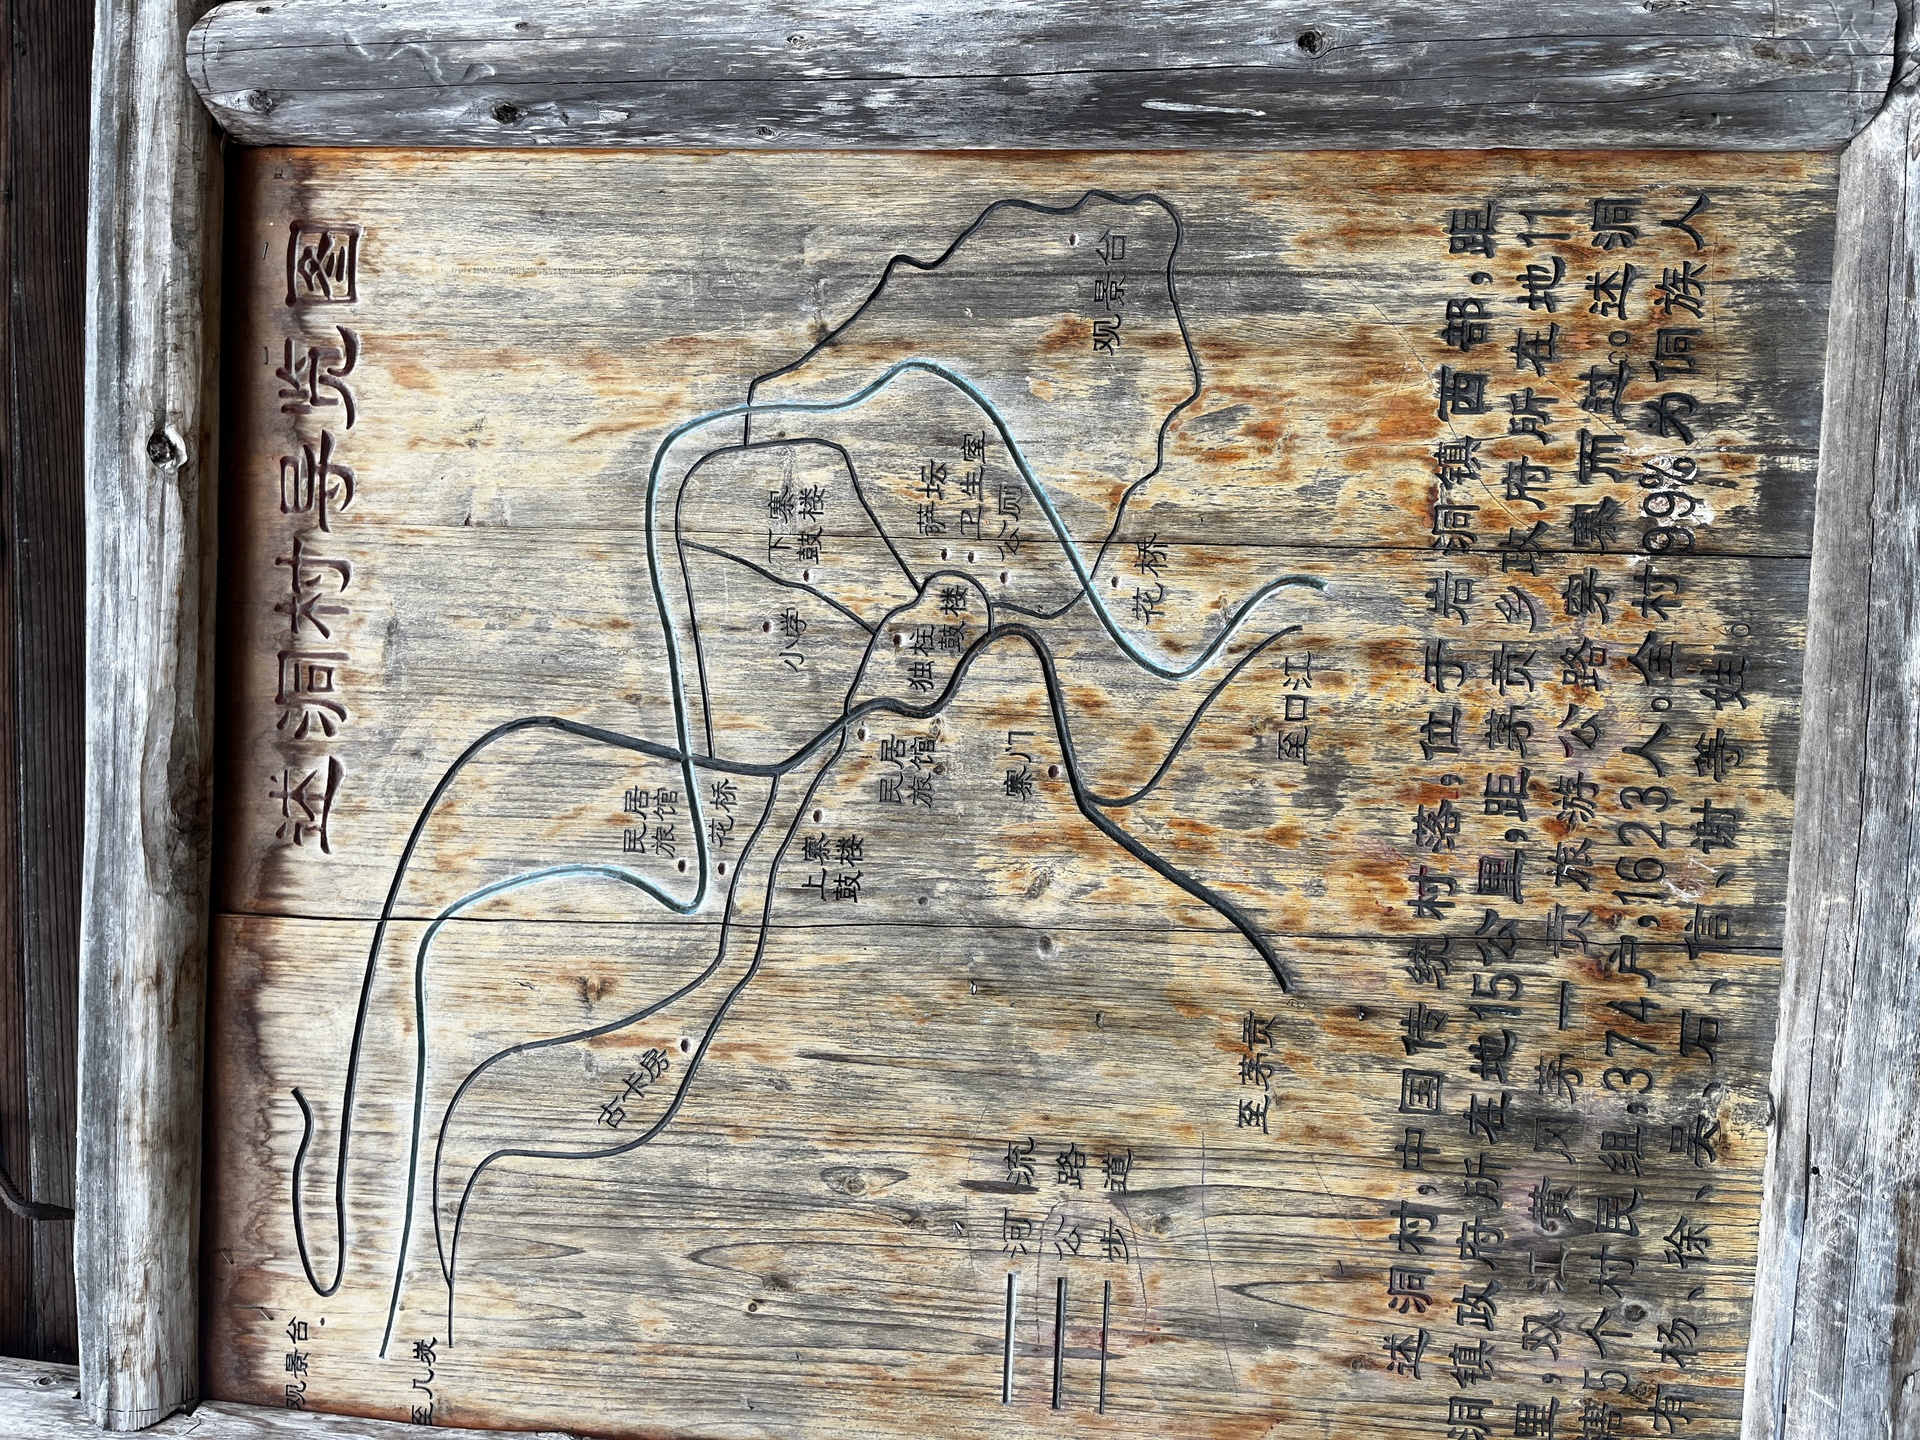 述洞村导览图
观景台
至几炭
民居
旅馆
花桥
古卡房
上寨
鼓楼
下寨
鼓楼
小学
民居
旅馆
独柱
鼓楼
萨坛
卫生室
公厕
观景台
寨门
花桥
至口江
至茅贡
河流
公路
步道
述洞村,中国传统村落,位于岩洞镇西部,距
洞镇政府所在地15公里,距茅贡乡政府所在地11
里,双江黄冈茅一贡旅游公路穿寨而过。述洞
辖5个村民组,374户,1623人。全村99%为侗族人
有杨、徐、吴、石、信、谢等姓。